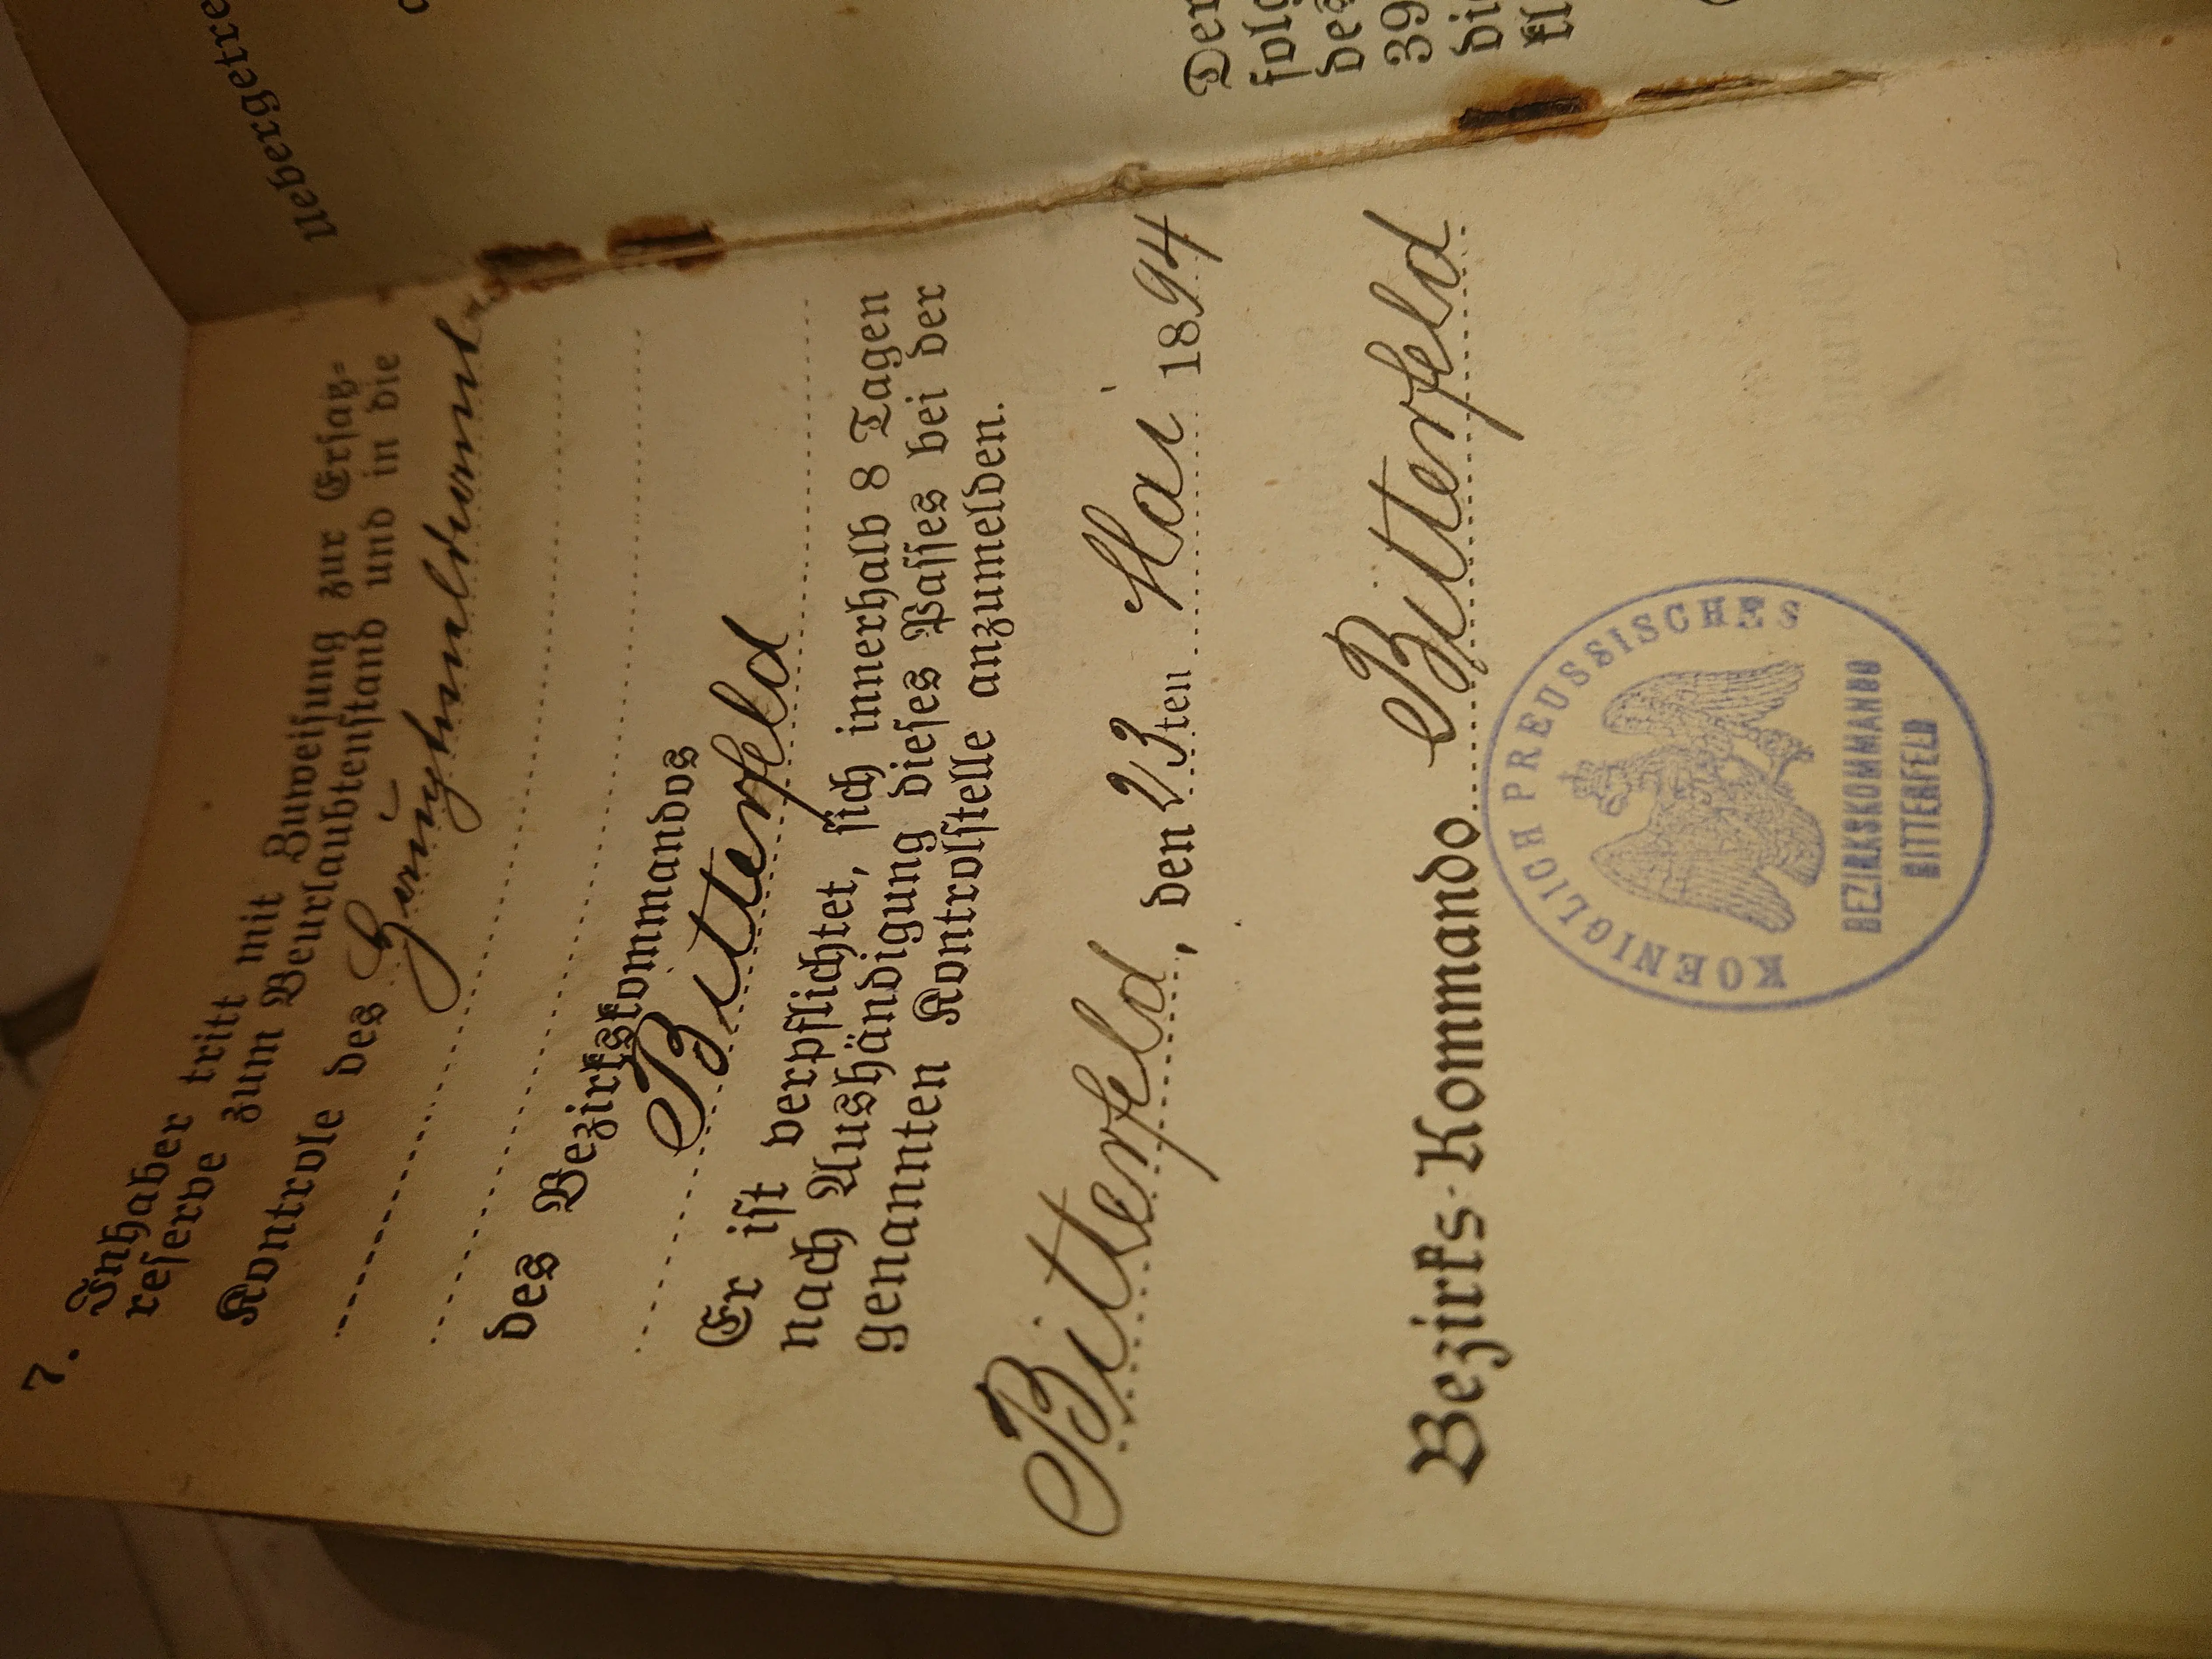 7. Inhaber tritt mit Zuweisung zur Ersatz-
reserve zum Beurlaubtenstand und in die
Kontrole des Hauptmeldeamts
des Bezirkskommandos
Bitterfeld
Er ist verpflichtet, sich innerhalb 8 Tagen
nach Aushändigung dieses Passes bei der
genannten Kontrolstelle anzumelden.
Bitterfeld, den 23ten Mai 1894
Bezirks-Kommando Bitterfeld
KOENIGLICH PREUSSISCHES
BEZIRKSKOMMANDO
BITTERFELD
Uebergetre
Der
folg
des
39
die